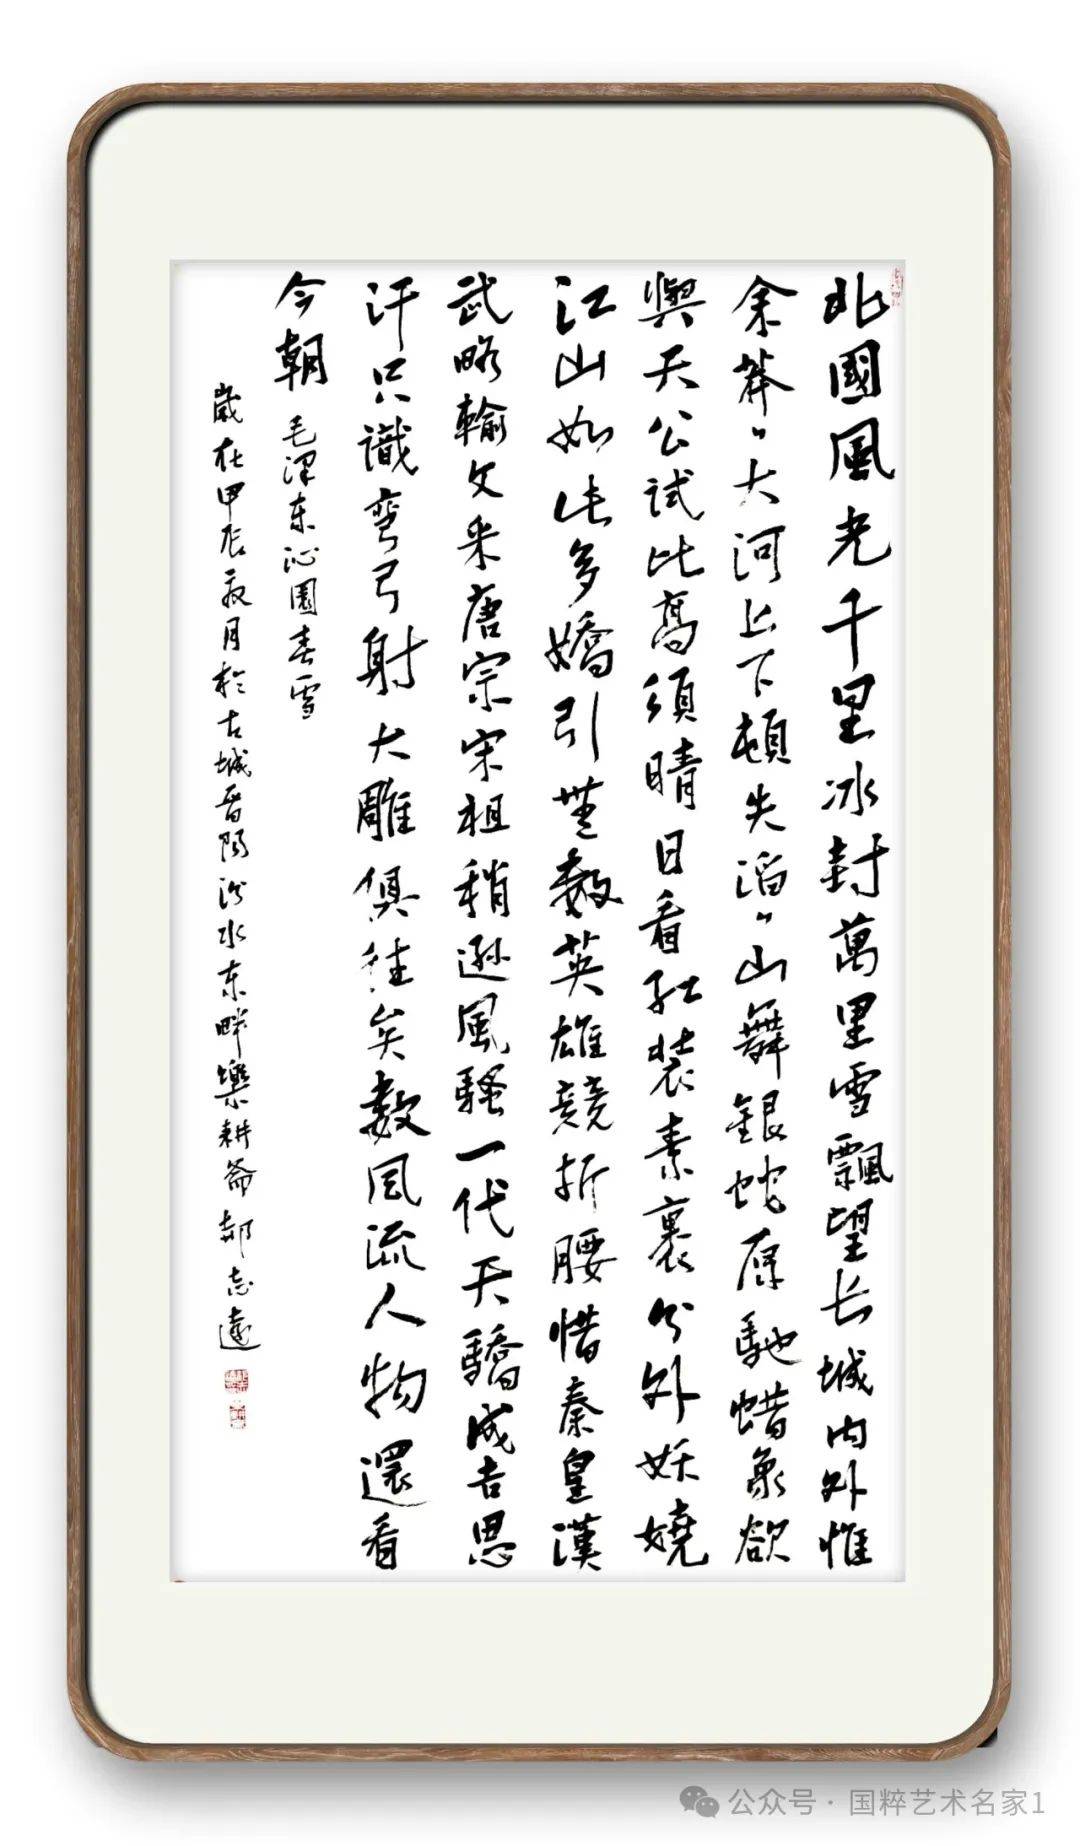 北國風光千里冰封萬里雪飄望长城内外惟
余莽〻大河上下頓失滔〻山舞銀蛇原馳蜡象欲
與天公試比高须晴日看红装素裹分外妖娆
江山如此多嬌引無數英雄競折腰惜秦皇漢
武略輸文采唐宗宋祖稍遜風騷一代天驕成吉思
汗只識彎弓射大雕俱往矣數风流人物還看
今朝
毛泽东沁園春雪
歲在甲辰月於古城晉陽汾水东畔樂耕斋郝志遠
公众号·国粹艺术名家1